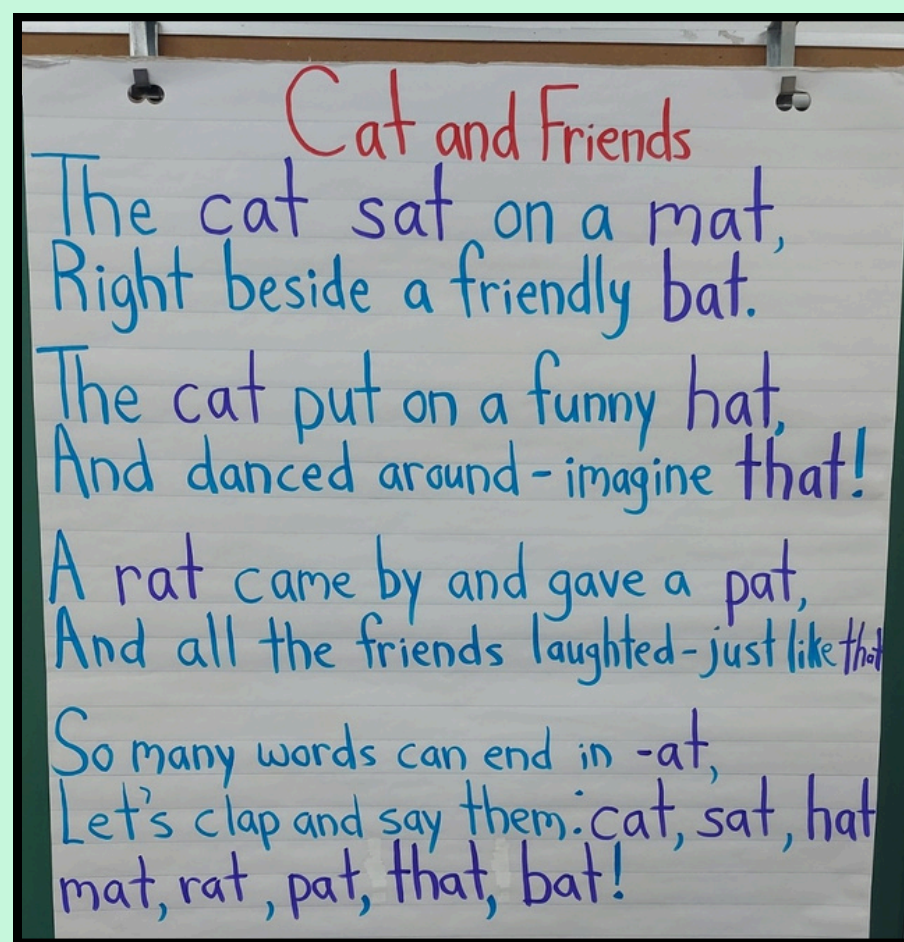 Cat and Friends
The cat sat on a mat,
Right beside a friendly bat.
The cat put on a funny hat,
And danced around - imagine that!
A rat came by and gave a pat,
And all the friends laughted - just like that
So many words can end in -at,
Let's clap and say them: cat, sat, hat
mat, rat, pat, that, bat!